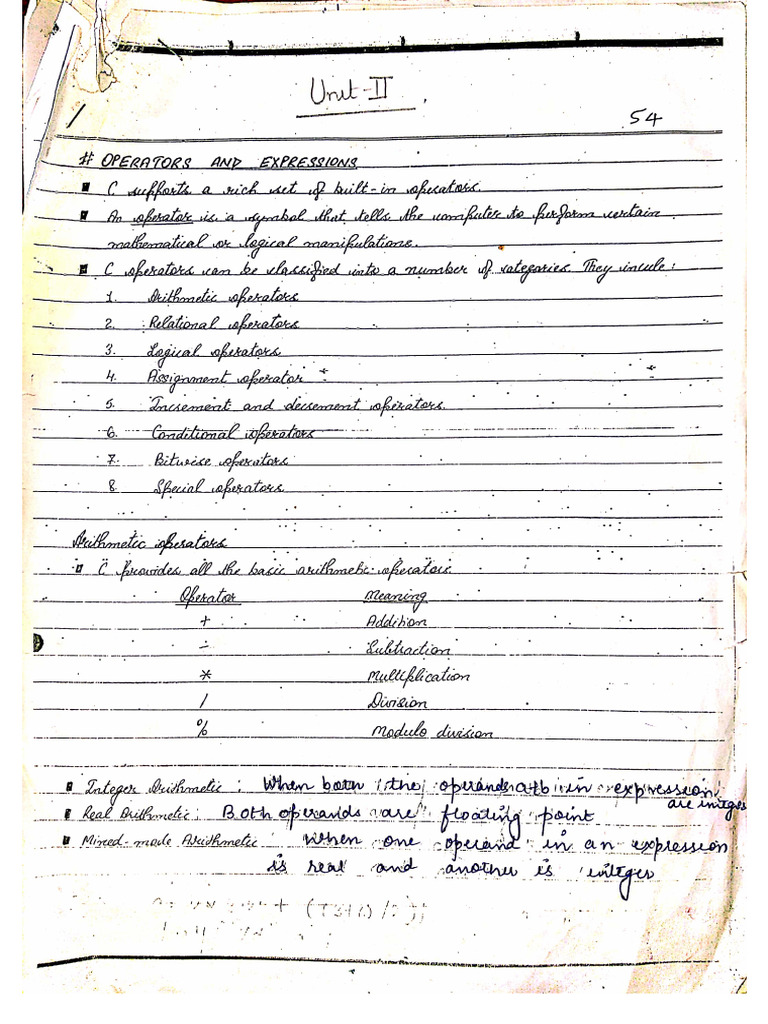 Unit-II
54
# OPERATORS AND EXPRESSIONS
C supports a rich set of built-in operators.
An operator is a symbol that tells the computer to perform certain
mathematical or logical manipulations.
C operators can be classified into a number of categories. They incule:
1. Arithmetic operators
2. Relational operators
3. Logical operators
4. Assignment operator
5. Increment and decrement operators.
6. Conditional operators
7. Bitwise operators
8. Special operators
Arithmetic operators
C provides all the basic arithmetic operators.
Operator Meaning
+ Addition
- Subtraction
* Multiplication
/ Division
% Modulo division
Integer Arithmetic : When both the operands a+b in expression
are integer
Real Arithmetic : Both operands are floating point
Mixed-mode Arithmetic when one operand in an expression
is real and another is integer